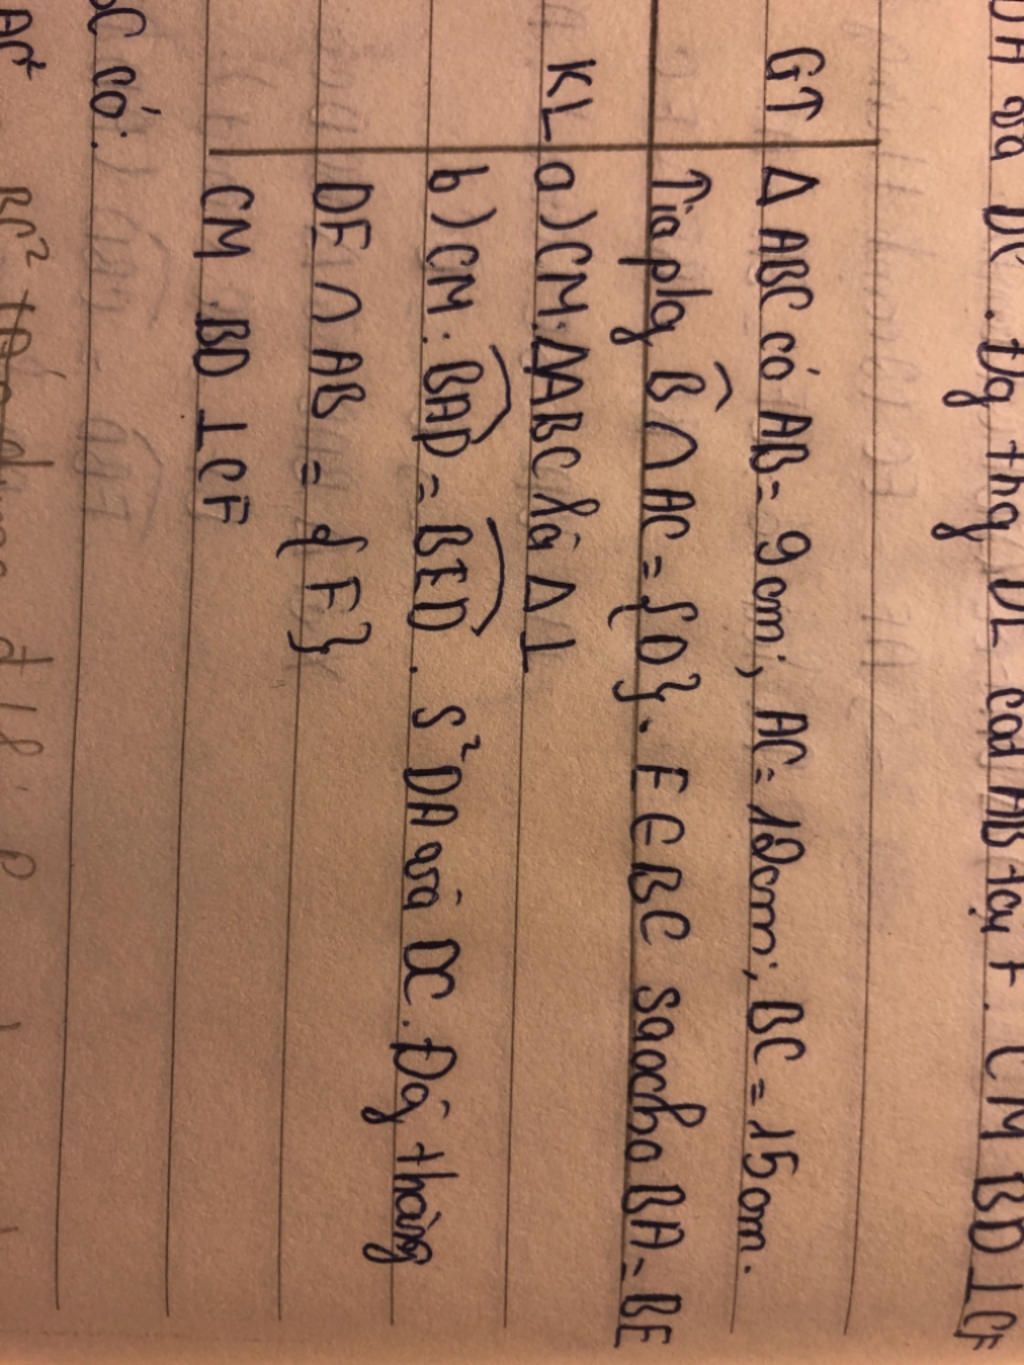 DA và DC. Đg thg DE cắt AB tại F. CM BD ⊥ CF
GT Δ ABC có AB = 9cm; AC = 12cm; BC = 15cm.
Tia p/g B̂ ∩ AC = {D}. E ∈ BC sao cho BA = BE
KL a) CM: ΔABC là Δ ⊥
b) CM: BAD = BED. S² DA và DC. Đg thẳng
DE ∩ AB = {F}
CM BD ⊥ CF
BC có:
AC² BC²